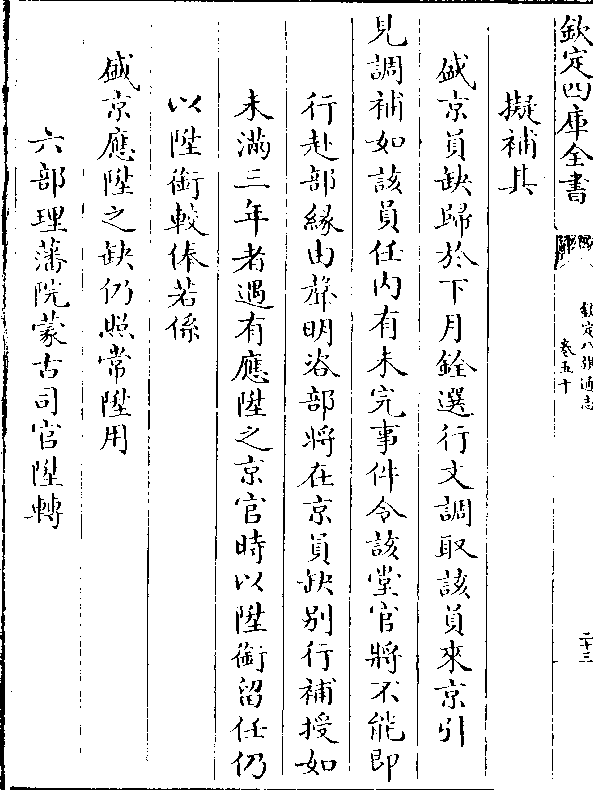 欽定四庫全書
欽定八旗通志
卷五十
二十三
擬補其
盛京員缺歸於下月銓選行文調取該員來京引
見調補如該員任内有未完事件令該堂官將不能即
行赴部緣由聲明咨部將在京員缺别行補授如
未滿三年者遇有應陞之京官時以陞銜留任仍
以陞銜較俸若係
盛京應陞之缺仍照常陞用
六部理藩院蒙古司官陞轉